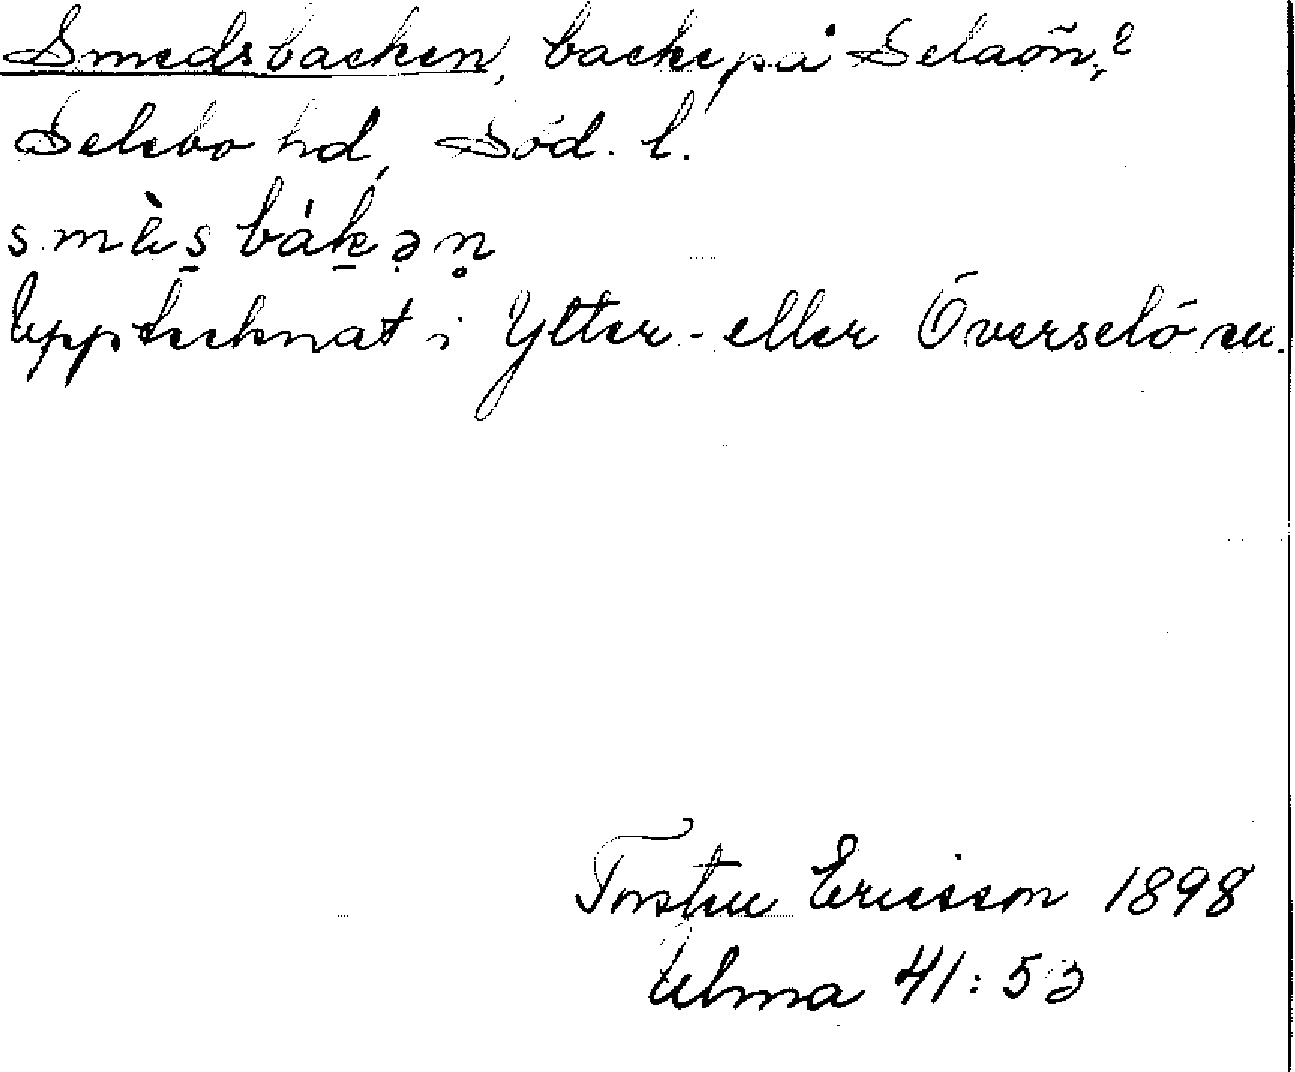 Smedsbacken, backe på Selaön,?
Selebo hd, Söd. l.
smès bákən
Upptecknat i Ytter- eller Överselö sn.
Torsten Ericsson 1898
Ulma 41:53